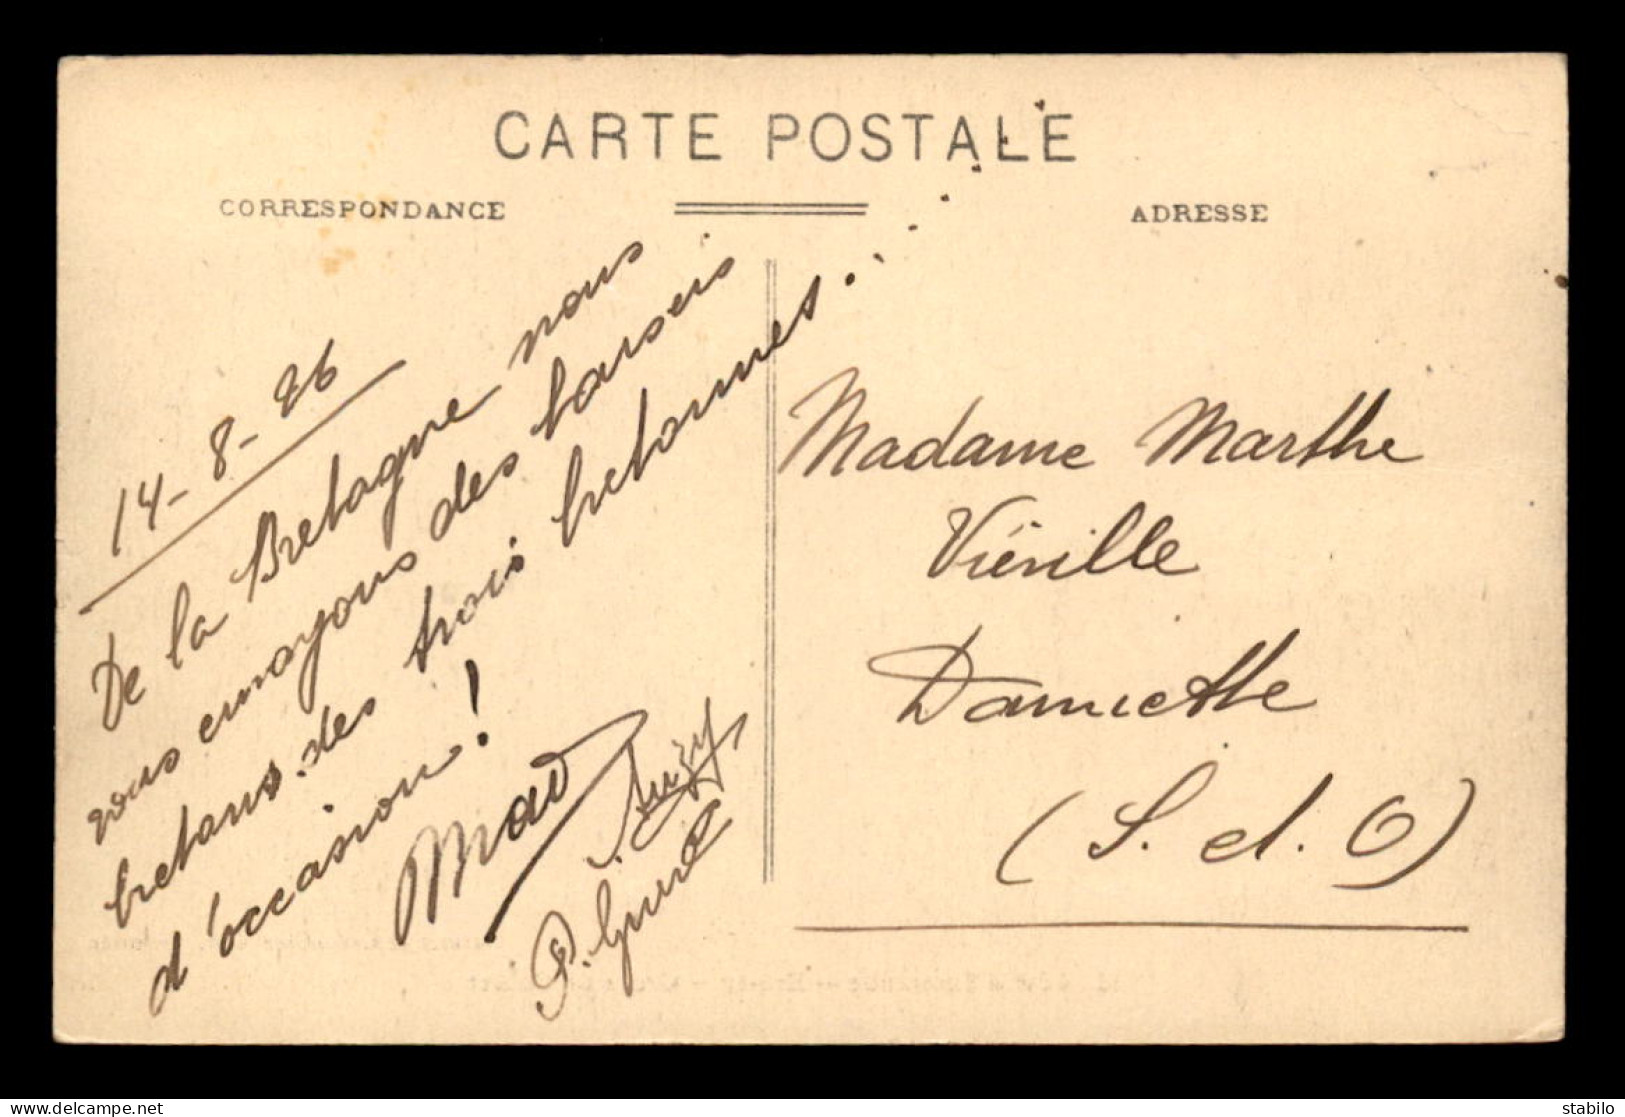 CARTE POSTALE
CORRESPONDANCE
ADRESSE
14-8-26
De la Bretagne nous
vous envoyons des baisers
bretons. des trois bretonnes....
d'occasion!
Mad
Suzy
Madame Marthe
Viéville
Damiette
(S. et. O)
stabilo